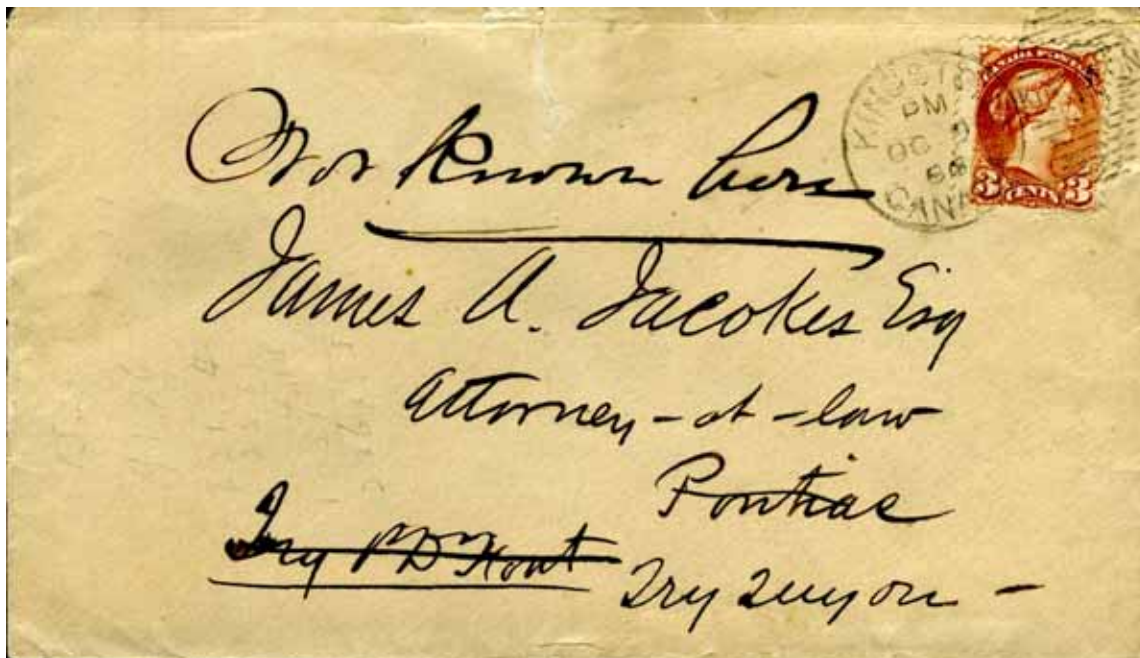 KINGSTO
PM
OC
CANA
CANADA POSTAGE
3 CENTS 3
Not Known here
James A. Jacokes Esq
Attorney-at-law
Pontiac
Try
Try Quyon -